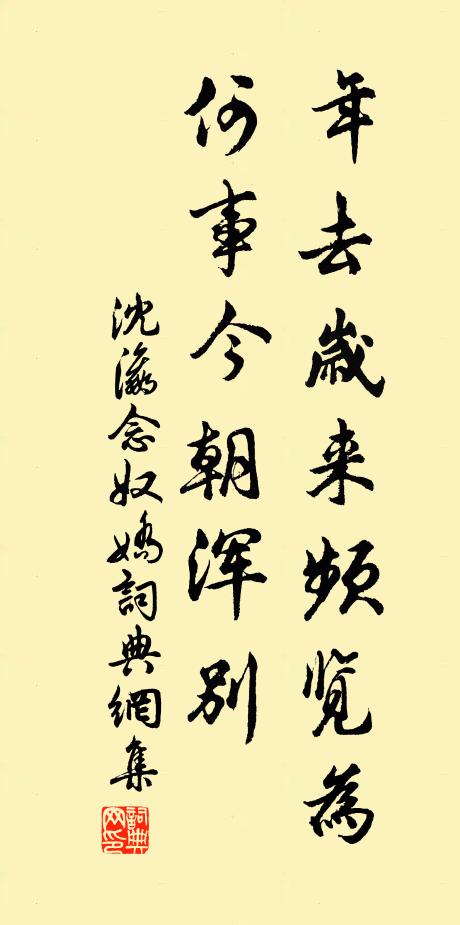 年去歲来頻覽為
何事今朝渾别
沈瀛念奴嬌詞典網集
詞典
网印